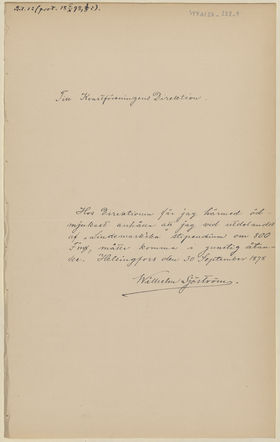 Till Konstföreningens Direktion.
Hos Direktionen får jag härmed öd-
mjukast anhålla att jag vid utdelandet
af Lindemarkska stipendium om 800
Fmk, måtte komma i gunstig åtan-
ke. Helsingfors den 30 September 1878
Wilhelm Sjöström.